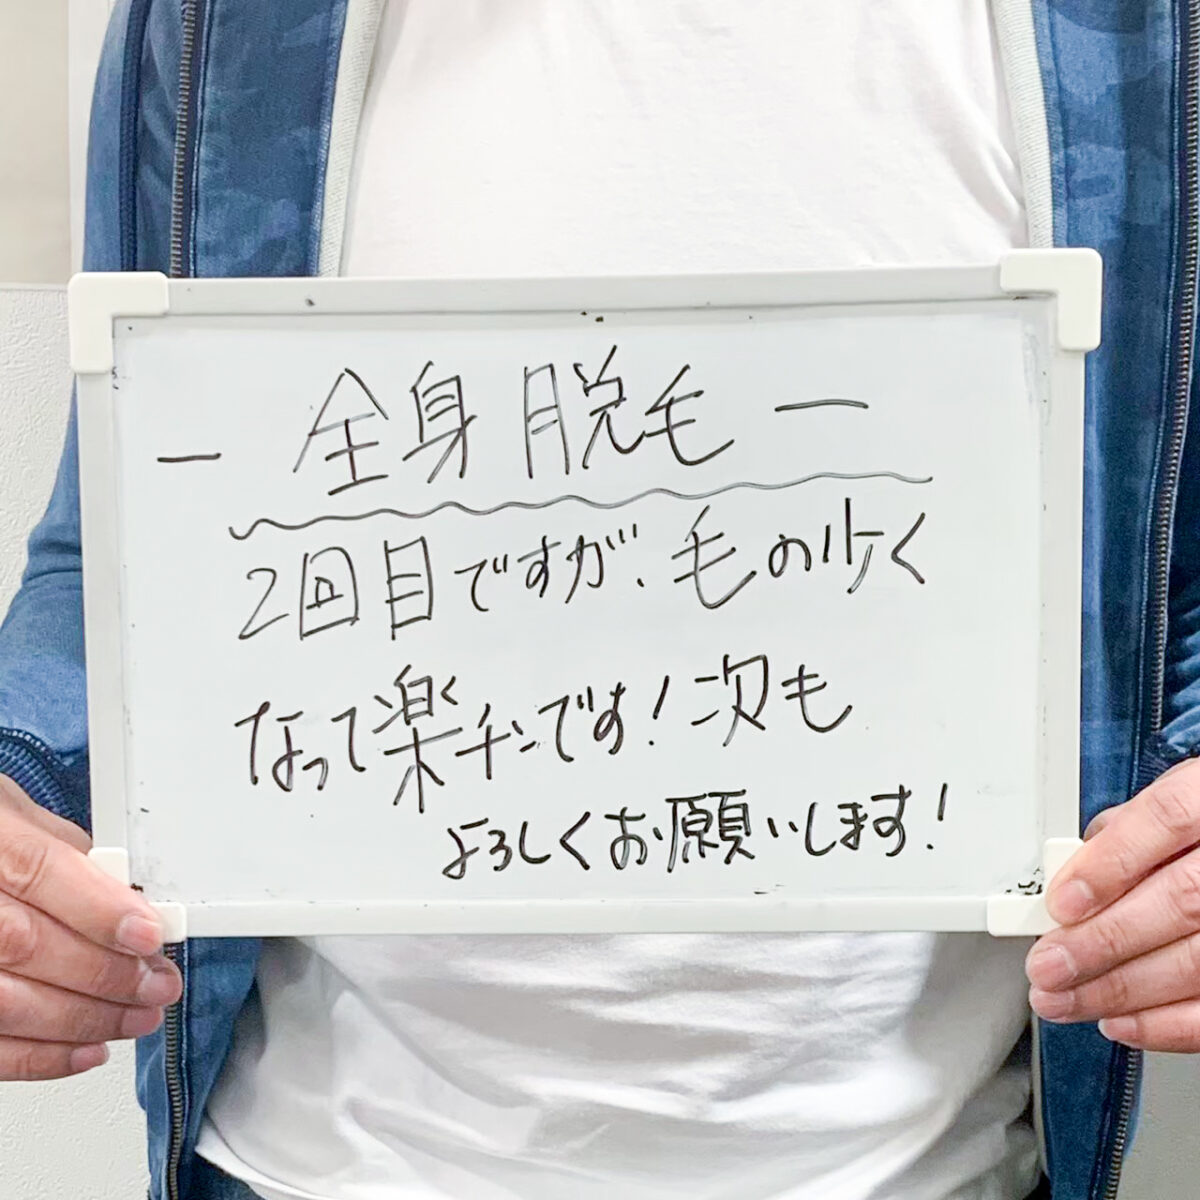 - 全身脱毛 -
2回目ですが、毛の少く
なって楽チンです!次も
よろしくお願いします!